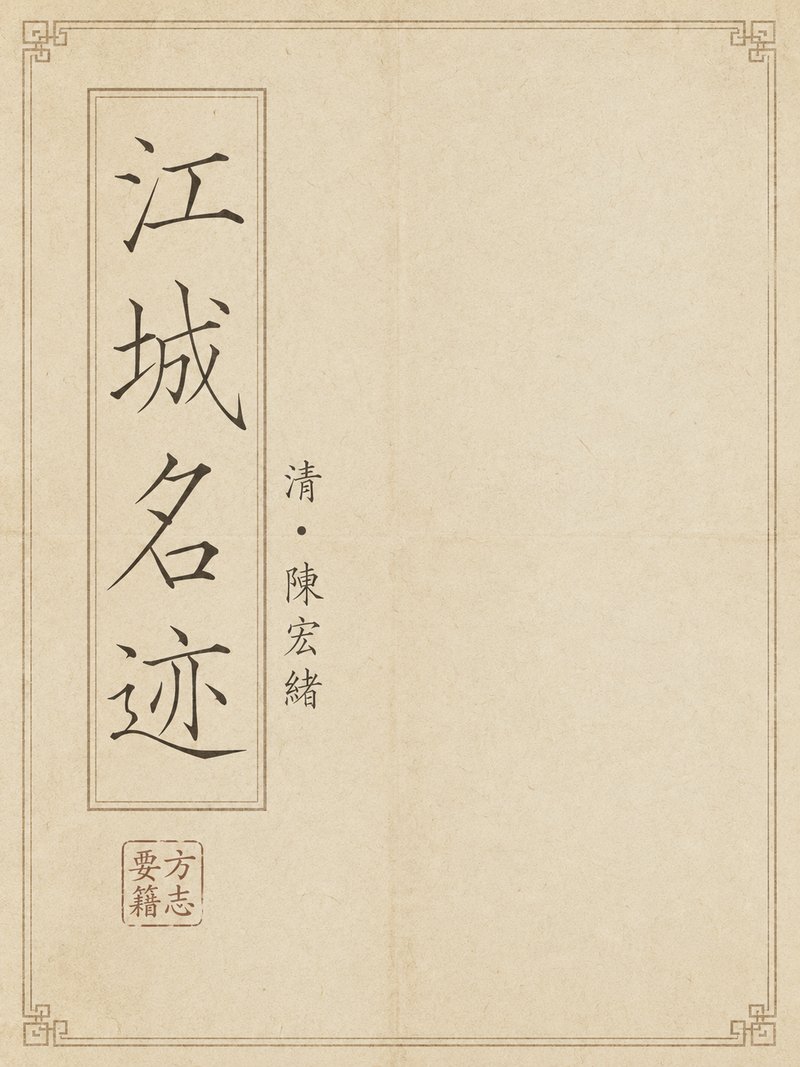 江城名迹
清·陳宏緒
方志
要籍